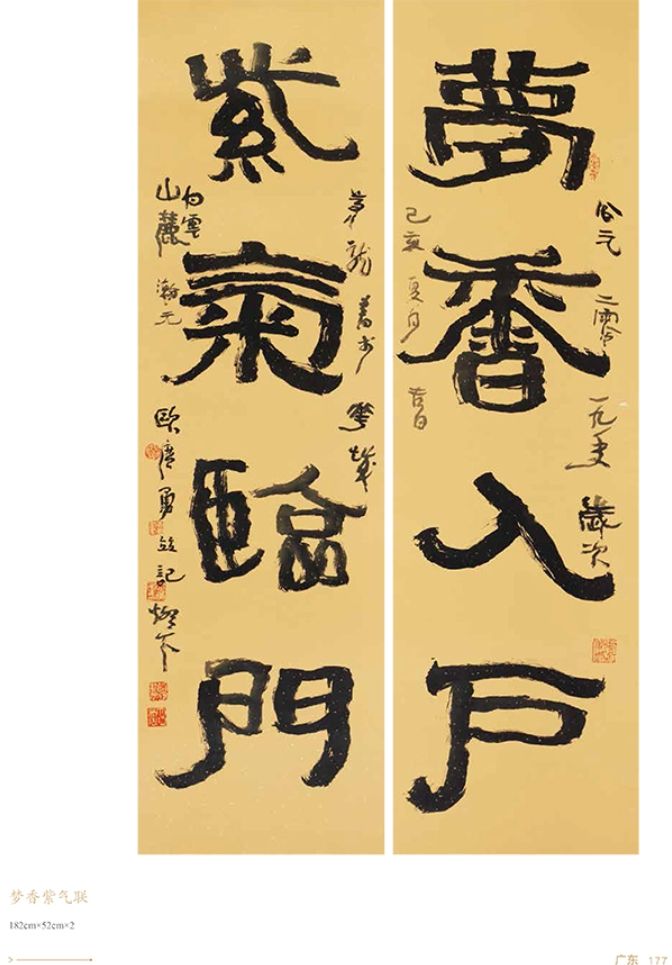 夢香入戶
公元二零一九年歲次
己亥夏月吉日
紫氣臨門
白雲
山麓瀚元
歐廣勇並記燈下
梦香紫气联
182cm×52cm×2
广东 177